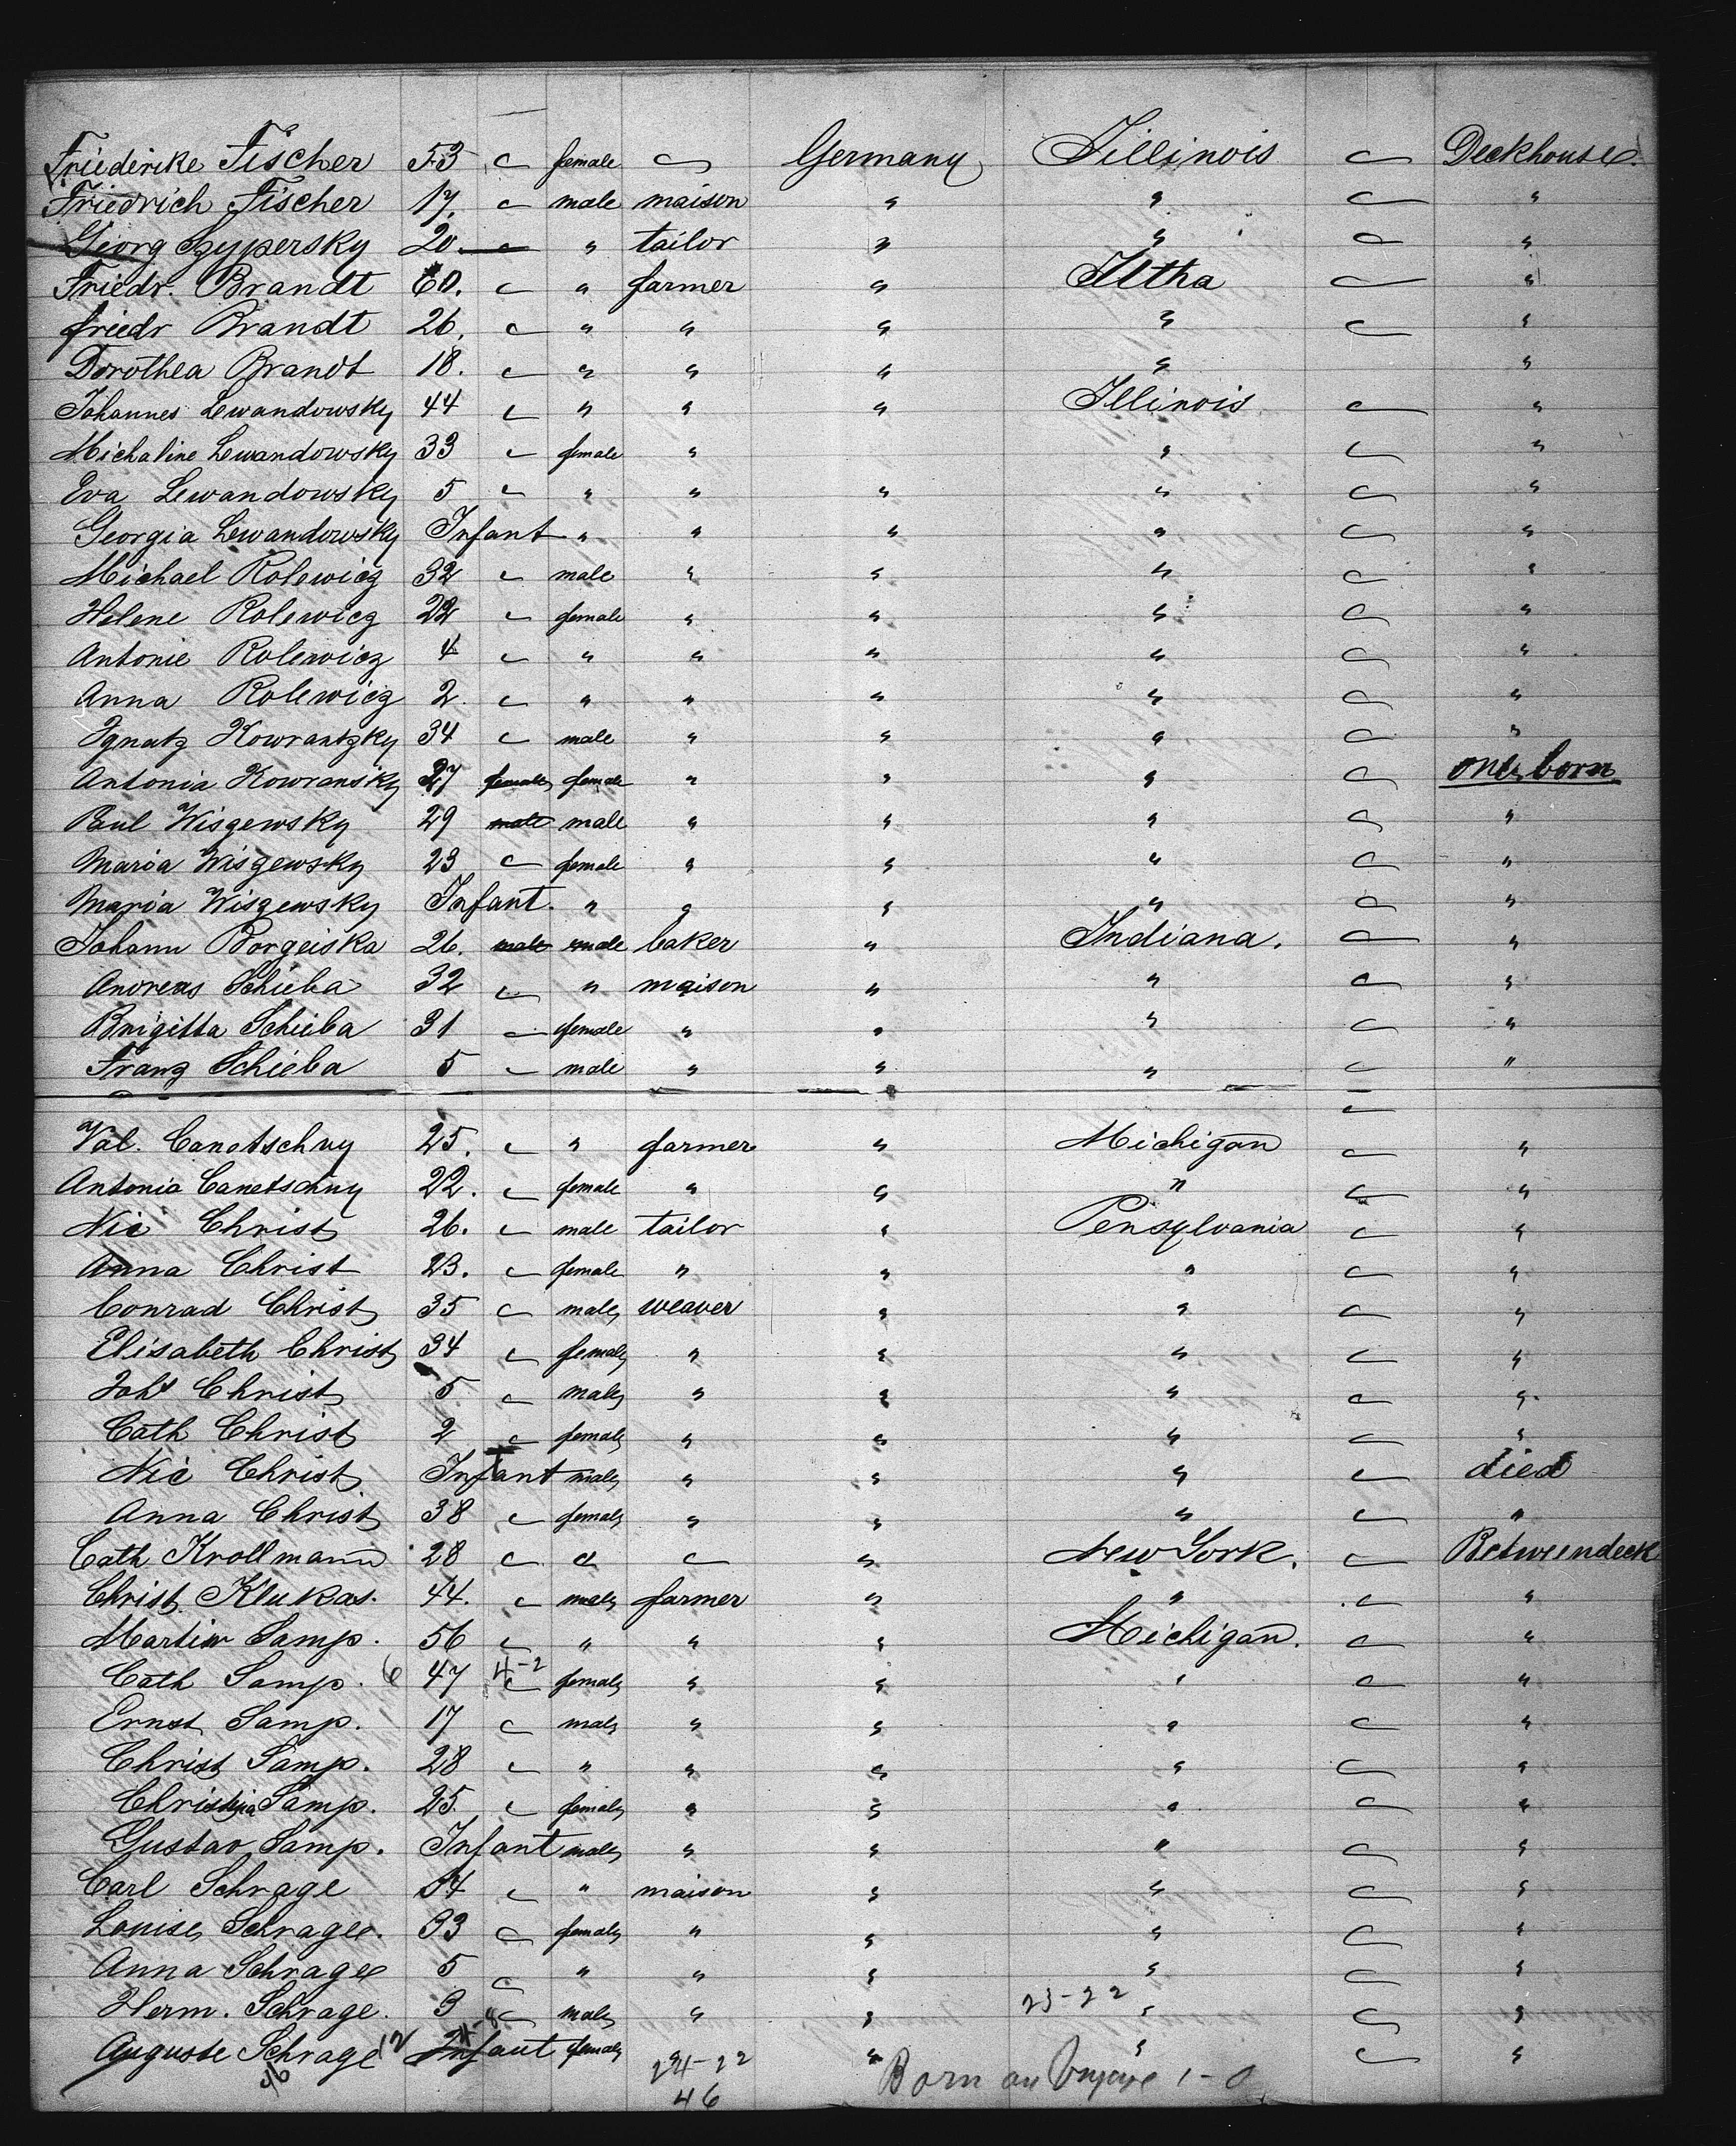 Friederike Fischer 53 " female " Germany Jillinois " Deckhouse
Friedrich Fischer 17. " male maison " " " "
Georg Szypersky 20. " " tailor " " " "
Friedr. Brandt 60. " " farmer " Iltha " "
Friedr Brandt 26. " " " " " " "
Dorothea Brandt 18. " " " " " "
Johannes Lewandowsky 44 " " " " Illinois " "
Michaline Lewandowsky 33 " female " " " "
Eva Lewandowsky 5 " " " " " " "
Georgia Lewandowsky Infant " " " " " "
Michael Rolewicz 32 " male " " " " "
Helene Rolewicz 22 " female " " " " "
Antonie Rolewicz 4 " " " " " " "
Anna Rolewicz 2 " " " " " " "
Ignatz Kowrantzky 34 " male " " " " "
Antonia Kowransky 27 female female " " " " one born
Paul Wiszewsky 29 male male " " " " "
Maria Wiszewsky 23 " female " " " " "
Maria Wiszewsky Infant. " " " " " "
Johann Borgeiska 26. male male baker " Indiana. " "
Andreas Schieba 32 " " maison " " " "
Brigitta Schieba 31 " female " " " " "
Franz Schieba 5 " male " " " " "
Val. Canetschny 25. " " farmer " Michigan " "
Antonia Canetschny 22. " female " " " " "
Nic Christ 26. " male tailor " Pensylvania " "
Anna Christ 23. " female " " " " "
Conrad Christ 35 " male weaver " " " "
Elisabeth Christ 34 " female " " " " "
Joh Christ 5 " male " " " " "
Cath Christ 2 " female " " " " "
Nic Christ Infant male " " " " died
Anna Christ 38 " female " " " " "
Cath Krollmann 28 " " " " New York. " Betweendeck
Christ. Klukas. 44. " male farmer " " " "
Martin Samp. 56 " " " " Michigan. " "
Cath Samp. 6 47 4-2 " female " " " " "
Ernst Samp. 17 " male " " " " "
Christ Samp. 28 " " " " " " "
Christina Samp. 25. " female " " " " "
Gustav Samp. Infant male " " " " "
Carl Schrage 34 " " maison " " " "
Louise Schrage. 33 " female " " " " "
Anna Schrage 5 " " " " " " "
Herm. Schrage. 3 " male " " 23-22 " " "
Auguste Schrage 12 Infant female " " " " "
46 24-22 Born on Voyage 1-0
46